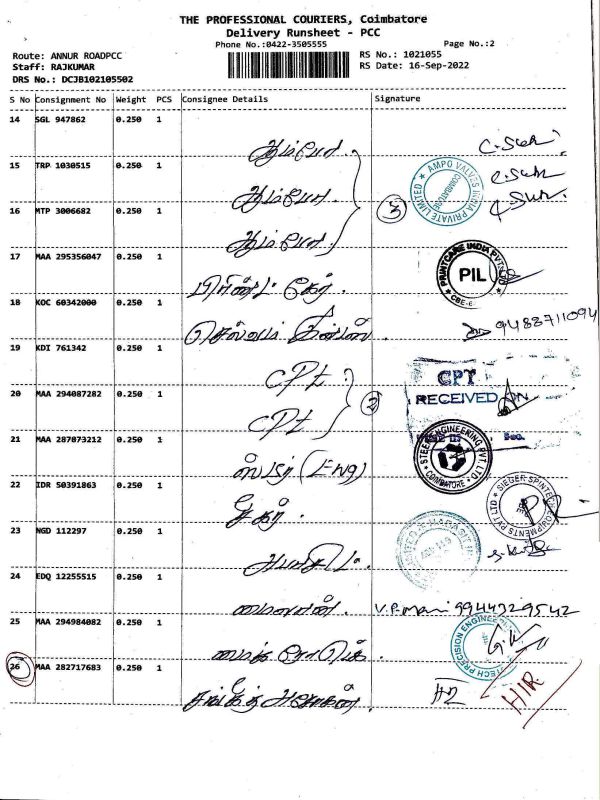 THE PROFESSIONAL COURIERS, Coimbatore
Delivery Runsheet - PCC
Phone No.:0422-3505555
Page No.:2
Route: ANNUR ROADPCC
RS No.: 1021055
Staff: RAJKUMAR
RS Date: 16-Sep-2022
DRS No.: DCJB102105502
S No Consignment No Weight PCS Consignee Details Signature
14 SGL 947862 0.250 1
ஆம்போ.
15 TRP 1030515 0.250 1
ஆம்போ.
AMPO VALVES INDIA PRIVATE LIMITED
COIMBATORE
3
16 MTP 3006682 0.250 1
ஆம்போ.
17 MAA 295356047 0.250 1
PRINTCARE INDIA PVT LTD
PIL
CBE-6
பிரிண்ட் கேர்
18 KOC 60342000 0.250 1
9488711094
19 KDI 761342 0.250 1
CPT
CPT
RECEIVED ON
20 MAA 294087282 0.250 1
2
CPT
21 MAA 287073212 0.250 1
ENGINEERING PVT LTD
COIMBATORE
(Eng)
22 IDR 50391863 0.250 1
SIEGER SPINTECH EQUIPMENTS PVT LTD
23 NGD 112297 0.250 1
24 EDQ 12255515 0.250 1
V.P.Mani 9944329542
25 MAA 294984082 0.250 1
TECH PRECISION ENGINEERING
26 MAA 282717683 0.250 1
HIR